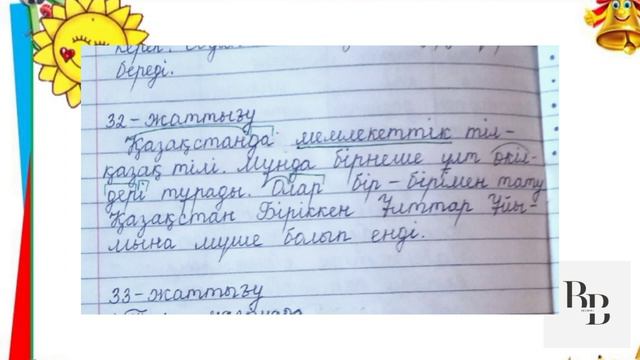 береді.
32-жаттығу
Қазақстанда мемлекеттік тіл-
қазақ тілі. Мұнда бірнеше ұлт өкіл-
дері тұрады. Олар бір-бірімен тату
Қазақстан Біріккен Ұлттар Ұйы-
мына мүше болып енді.
33-жаттығу